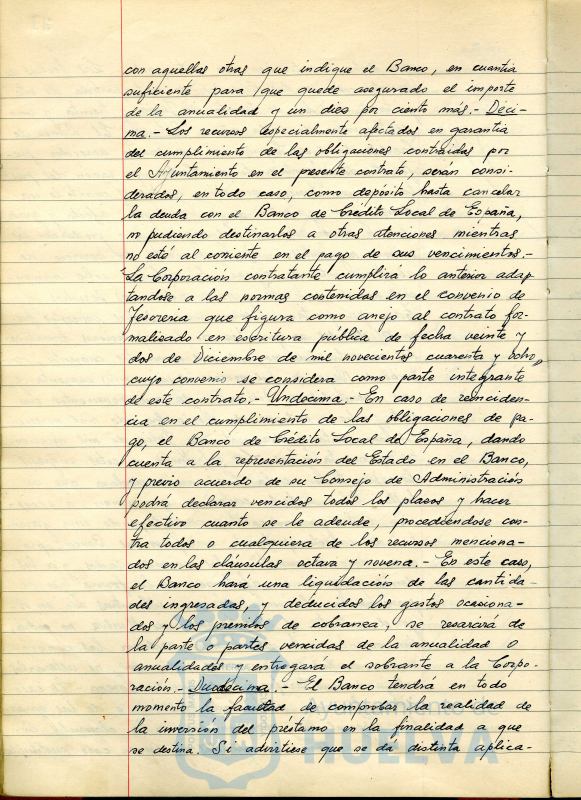 con aquellas otras que indique el Banco, en cuantía
suficiente para que quede asegurado el importe
de la anualidad y un diez por ciento más.- Déci-
ma.- Los recursos especialmente afectados en garantía
del cumplimiento de las obligaciones contraidas por
el Ayuntamiento en el presente contrato, serán consi-
derados, en todo caso, como depósito hasta cancelar
la deuda con el Banco de Crédito Local de España,
no pudiendo destinarlos a otras atenciones mientras
no esté al corriente en el pago de sus vencimientos.-
La Corporación contratante cumplirá lo anterior adap-
tandose a las normas contenidas en el convenio de
Tesoreria que figura como anejo al contrato for-
malizado en escritura pública de fecha veinte y
dos de Diciembre de mil novecientos cuarenta y ocho,
cuyo convenio se considera como parte integrante
de este contrato.- Undécima.- En caso de reinciden-
cia en el cumplimiento de las obligaciones de pa-
go, el Banco de Crédito Local de España, dando
cuenta a la representación del Estado en el Banco,
y previo acuerdo de su Consejo de Administración
podrá declarar vencidos todos los plazos y hacer
efectivo cuanto se le adeude, procediéndose con-
tra todos o cualquiera de los recursos menciona-
dos en las cláusulas octava y novena.- En este caso,
el Banco hará una liquidación de las cantida-
des ingresadas, y deducidos los gastos ocasiona-
dos y los premios de cobranza, se resarcirá de
la parte o partes vencidas de la anualidad o
anualidades y entregará el sobrante a la Corpo-
ración.- Duodécima.- El Banco tendrá en todo
momento la facultad de comprobar la realidad de
la inversión del préstamo en la finalidad a que
se destina. Si advirtiese que se dá distinta aplica-
HUELVA